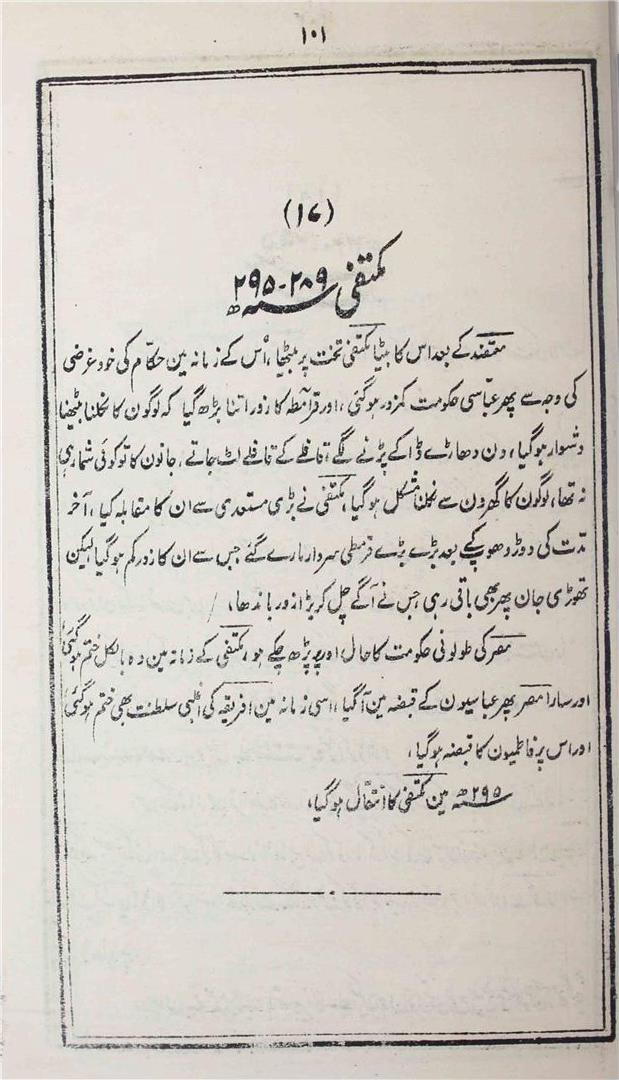 ۱۰۱
(۱۷)
مکتفی ۲۸۹-۲۹۵ھ
معتضد کے بعد اس کا بیٹا مکتفی تخت پر بیٹھا، اُس کے زمانہ مین حکام کی خود غرضی
کی وجہ سے پھر عباسی حکومت کمزور ہوگئی، اور قرامطہ کا زور اتنا بڑھ گیا کہ لوگون کا نکلنا بیٹھنا
دشوار ہوگیا، دن دھاڑے ڈاکے پڑنے لگے، قافلے کے قافلے لٹ جاتے، جانون کا تو کوئی شمار ہی
نہ تھا، لوگون کا گھرون سے نکلنا مشکل ہوگیا، مکتفی نے بڑی مستعدی سے ان کا مقابلہ کیا، آخر
مدت کی دوڑ دھوپ کے بعد بڑے بڑے قرمطی سردار مارے گئے جس سے ان کا زور کم ہوگیا لیکن
تھوڑی جان پھر بھی باقی رہی جس نے آگے چل کر بڑا زور باندھا،
مصر کی طولونی حکومت کا حال اوپر پڑھ چکے ہو، مکتفی کے زمانہ مین وہ بالکل ختم ہوگئی،
اور سارا مصر پھر عباسیون کے قبضہ مین آگیا، اسی زمانہ مین افریقہ کی اغلبی سلطنت بھی ختم ہوگئی،
اور اس پر فاطمیون کا قبضہ ہوگیا،
۲۹۵ھ مین مکتفی کا انتقال ہوگیا،